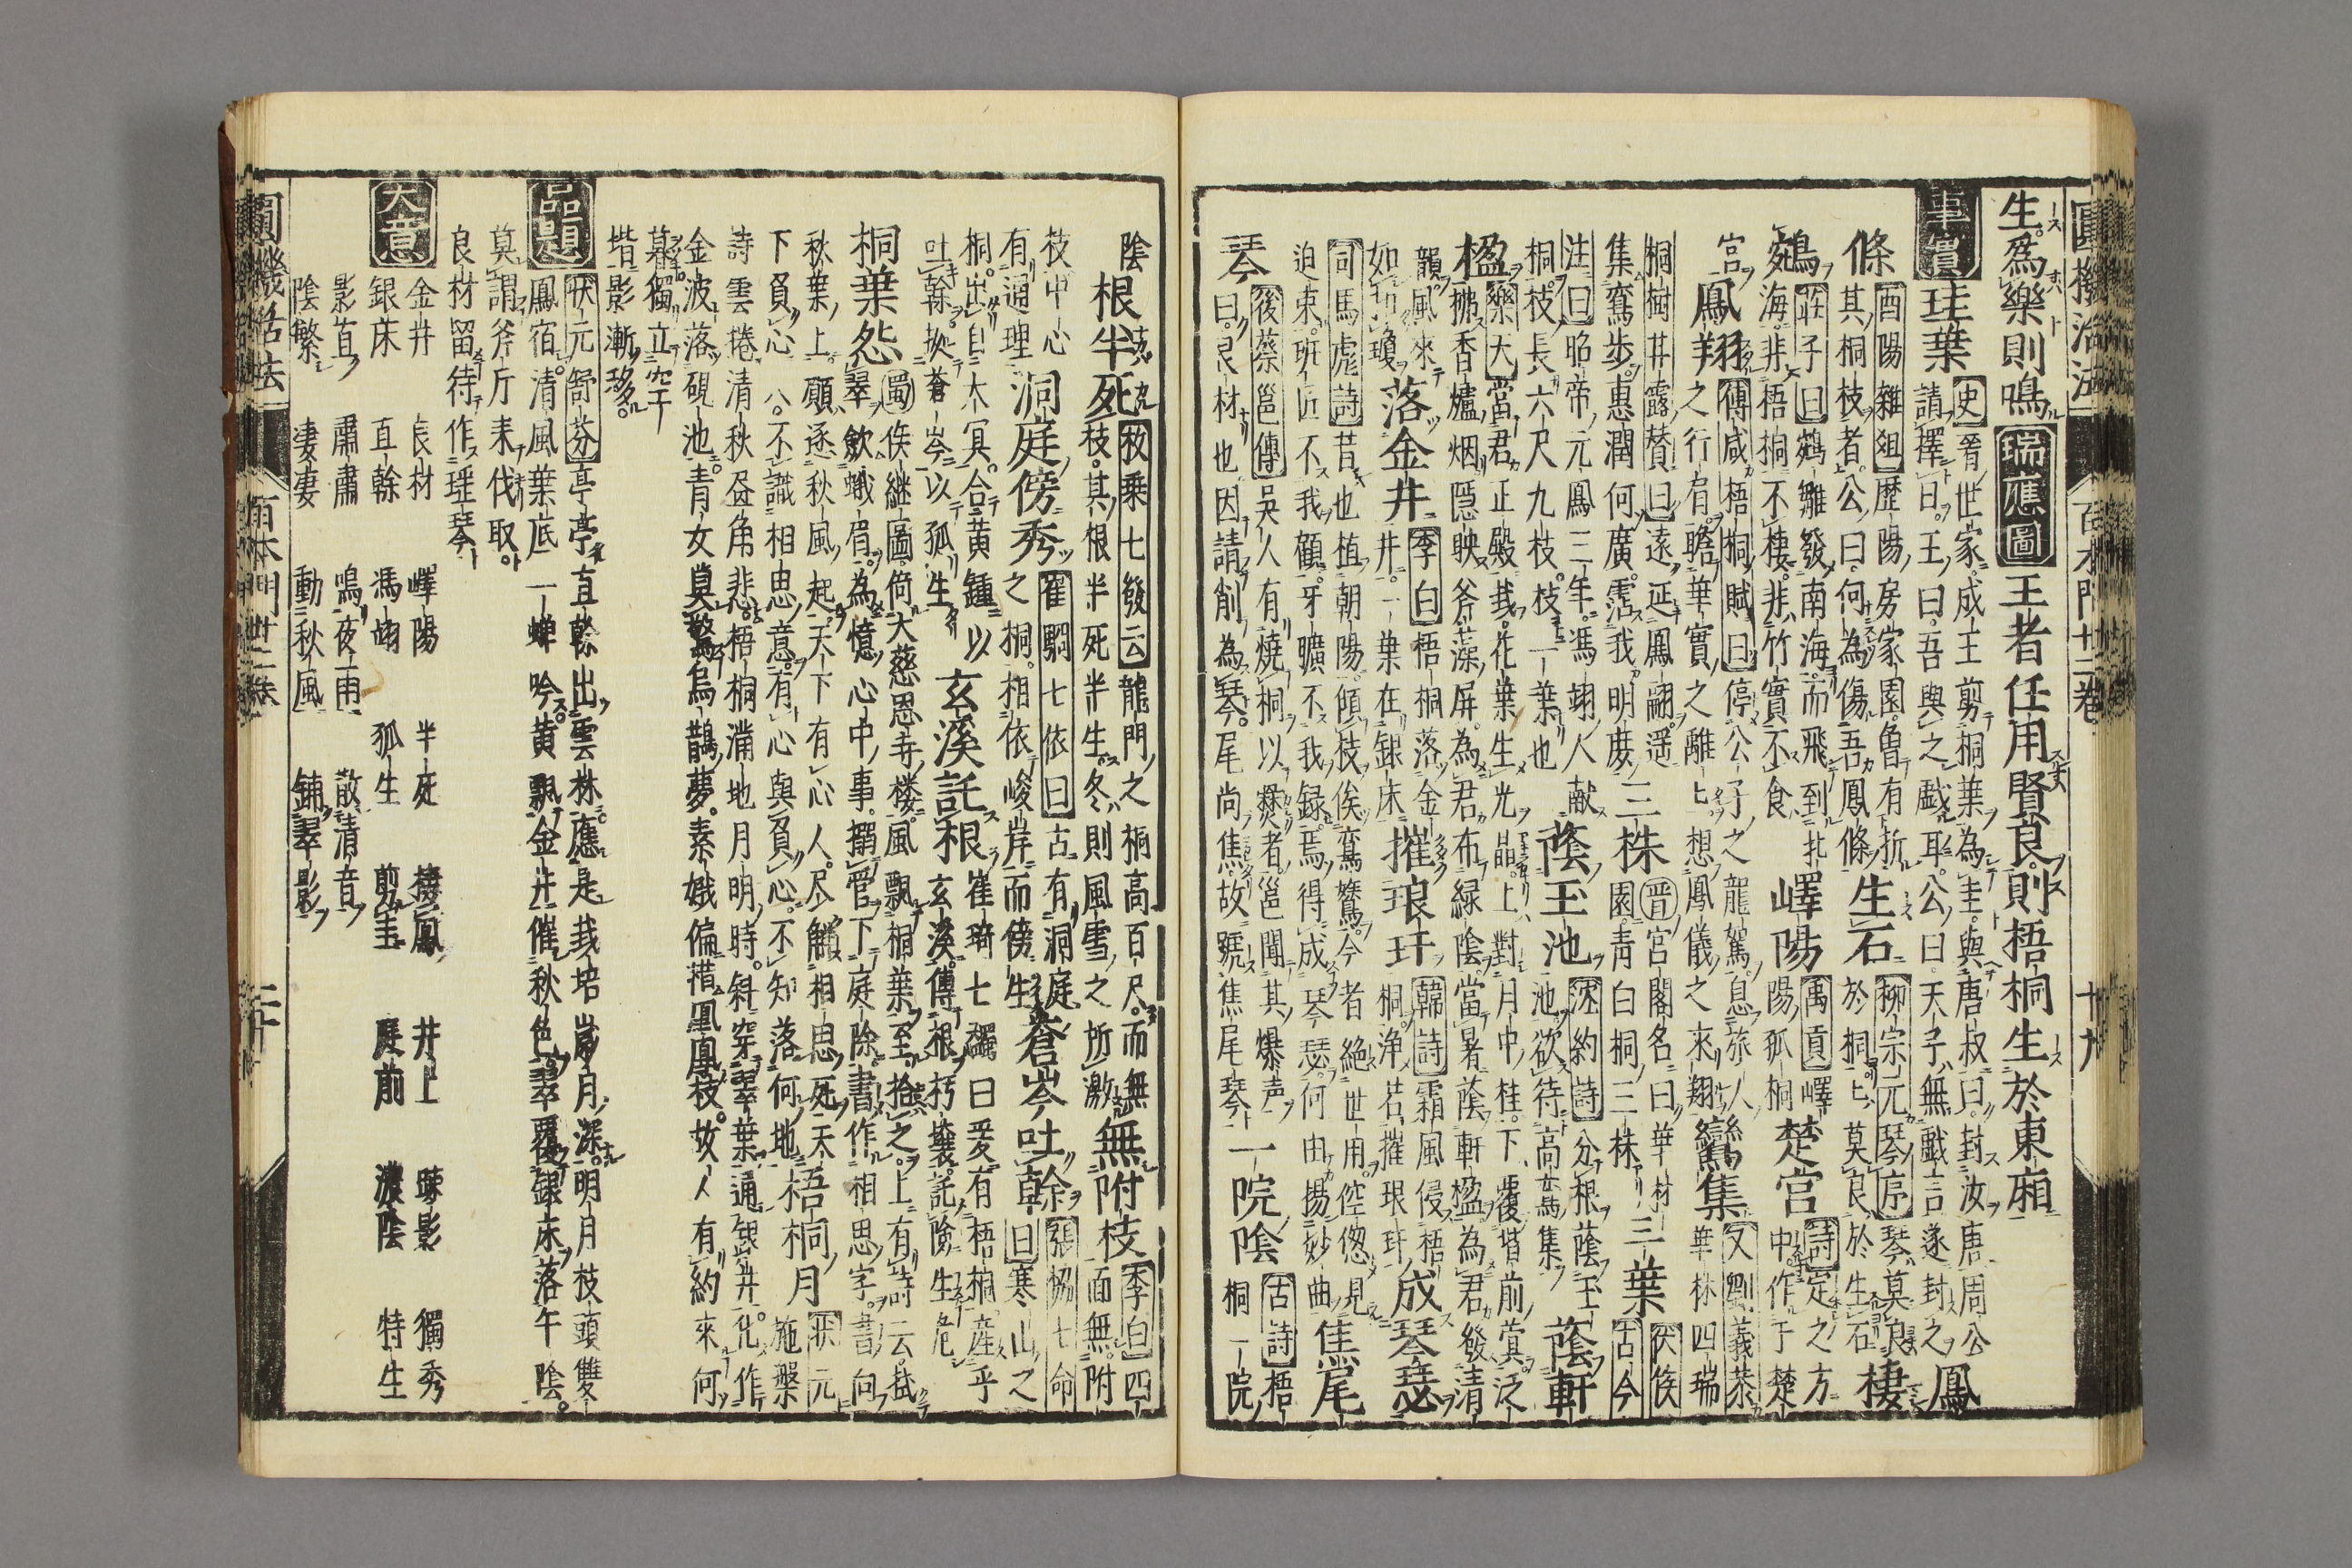 生為樂則鳴 瑞應圖 王者任用賢良則梧桐生於東廂
事實 珪葉 史晉世家成王剪桐葉為圭與唐叔曰封汝唐周公
請擇日王曰吾與之戲耳公曰天子無戲言遂封之 鳳
條 酉陽雜俎歷陽房家園魯有折
其桐枝者公曰何為傷吾鳳條 生石 柳宗元琴序琴莫良
於桐桐莫良於生石 棲
鵷 莊子曰鵷雛發南海而飛到北
海非梧桐不棲非竹實不食 嶧陽 禹貢嶧
陽孤桐 楚宮 詩定之方
中作于楚
宮 鳳翔 傅咸梧桐賦曰停公子之龍駕息旅人
之行肩瞻華實之離離想鳳儀之來翔 鸞集 又劉義恭
華林四瑞
桐樹井露贊曰遠延鳳翮遥
集鸞步惠潤何廣霑我明庭 三株 晉宮閣名曰華林
園青白桐三株 三葉 伏侯
古今
注曰昭帝元鳳三年馮翊人献
桐枝長六尺九枝枝一葉也 蔭玉池 沈約詩分根蔭玉
池欲待高鸞集 蔭軒
楹 樂大當君正殿栽花葉生光晶上對月中桂下覆堦前蓂泛
拂香爐烟隱映斧藻屏為君布緑陰當暑蔭軒楹為君發清
韻風來
如叩瓊 落金井 李白梧桐落金
井一葉在銀床 摧琅玕 韓詩霜風侵梧
桐浄若摧琅玕 成琴瑟
司馬彪詩昔也植朝陽傾枝俟鸞鷟今者絶世用倥偬見
迫束班匠不我顧牙曠不我録焉得成琴瑟何由揚妙曲 焦尾
琴 後蔡邕傳吳人有燒桐以爨者邕聞其爆声
曰良材也因請削為琴尾尚焦故號焦尾琴 一院陰 古詩梧
桐一院
陰 根半死 枚乘七發云龍門之桐高百尺而無
枝其根半死半生冬則風雪之所激 無附枝 李白四
面無附
枝中心
有通理 洞庭傍秀 崔駰七依曰古有洞庭
之桐相依峻岸而傍生 蒼岑吐幹 張協七命
曰寒山之
桐出自太冥含黄鍾以
吐幹拠蒼岑以孤生 玄溪託根 崔琦七蠲曰爰有梧桐産乎
玄溪傳根朽壤託險生危
桐葉怨 蜀侯継圖倚大慈恩寺楼風飄桐葉至拾之上有詩云拭
翠歛蛾眉為憶心中事搦管下庭除書作相思字書向
秋葉上願逐秋風起天下有心人尽觧相思死天
下負心人不識相思意有心與負心不知落何地 梧桐月 状元
施槃
詩雲捲清秋昼角悲梧桐滿地月明時斜穿翠葉通銀井化作
金波落硯池青女莫驚烏鵲夢素娥偏措鳳凰枝故人有約來何
暮獨立空
堦影漸移
品題 状元舒芬亭亭直幹出雲林應是栽培歲月深明月枝頭雙
鳳宿清風葉底一蝉吟黄飄金井催秋色翠覆銀床落午陰
莫謂斧斤来伐取
良材留待作瑶琴
大意 金井 良材 嶧陽 半死 棲鳳 井上 踈影 獨秀
銀床 直幹 馮翊 孤生 剪圭 庭前 濃陰 特生
影直 肅肅 鳴夜雨 散清音
陰繁 凄凄 動秋風 鋪翠影
圓機活法 百木門廿二卷 十九
圓機活法 百木門廿二卷 二十